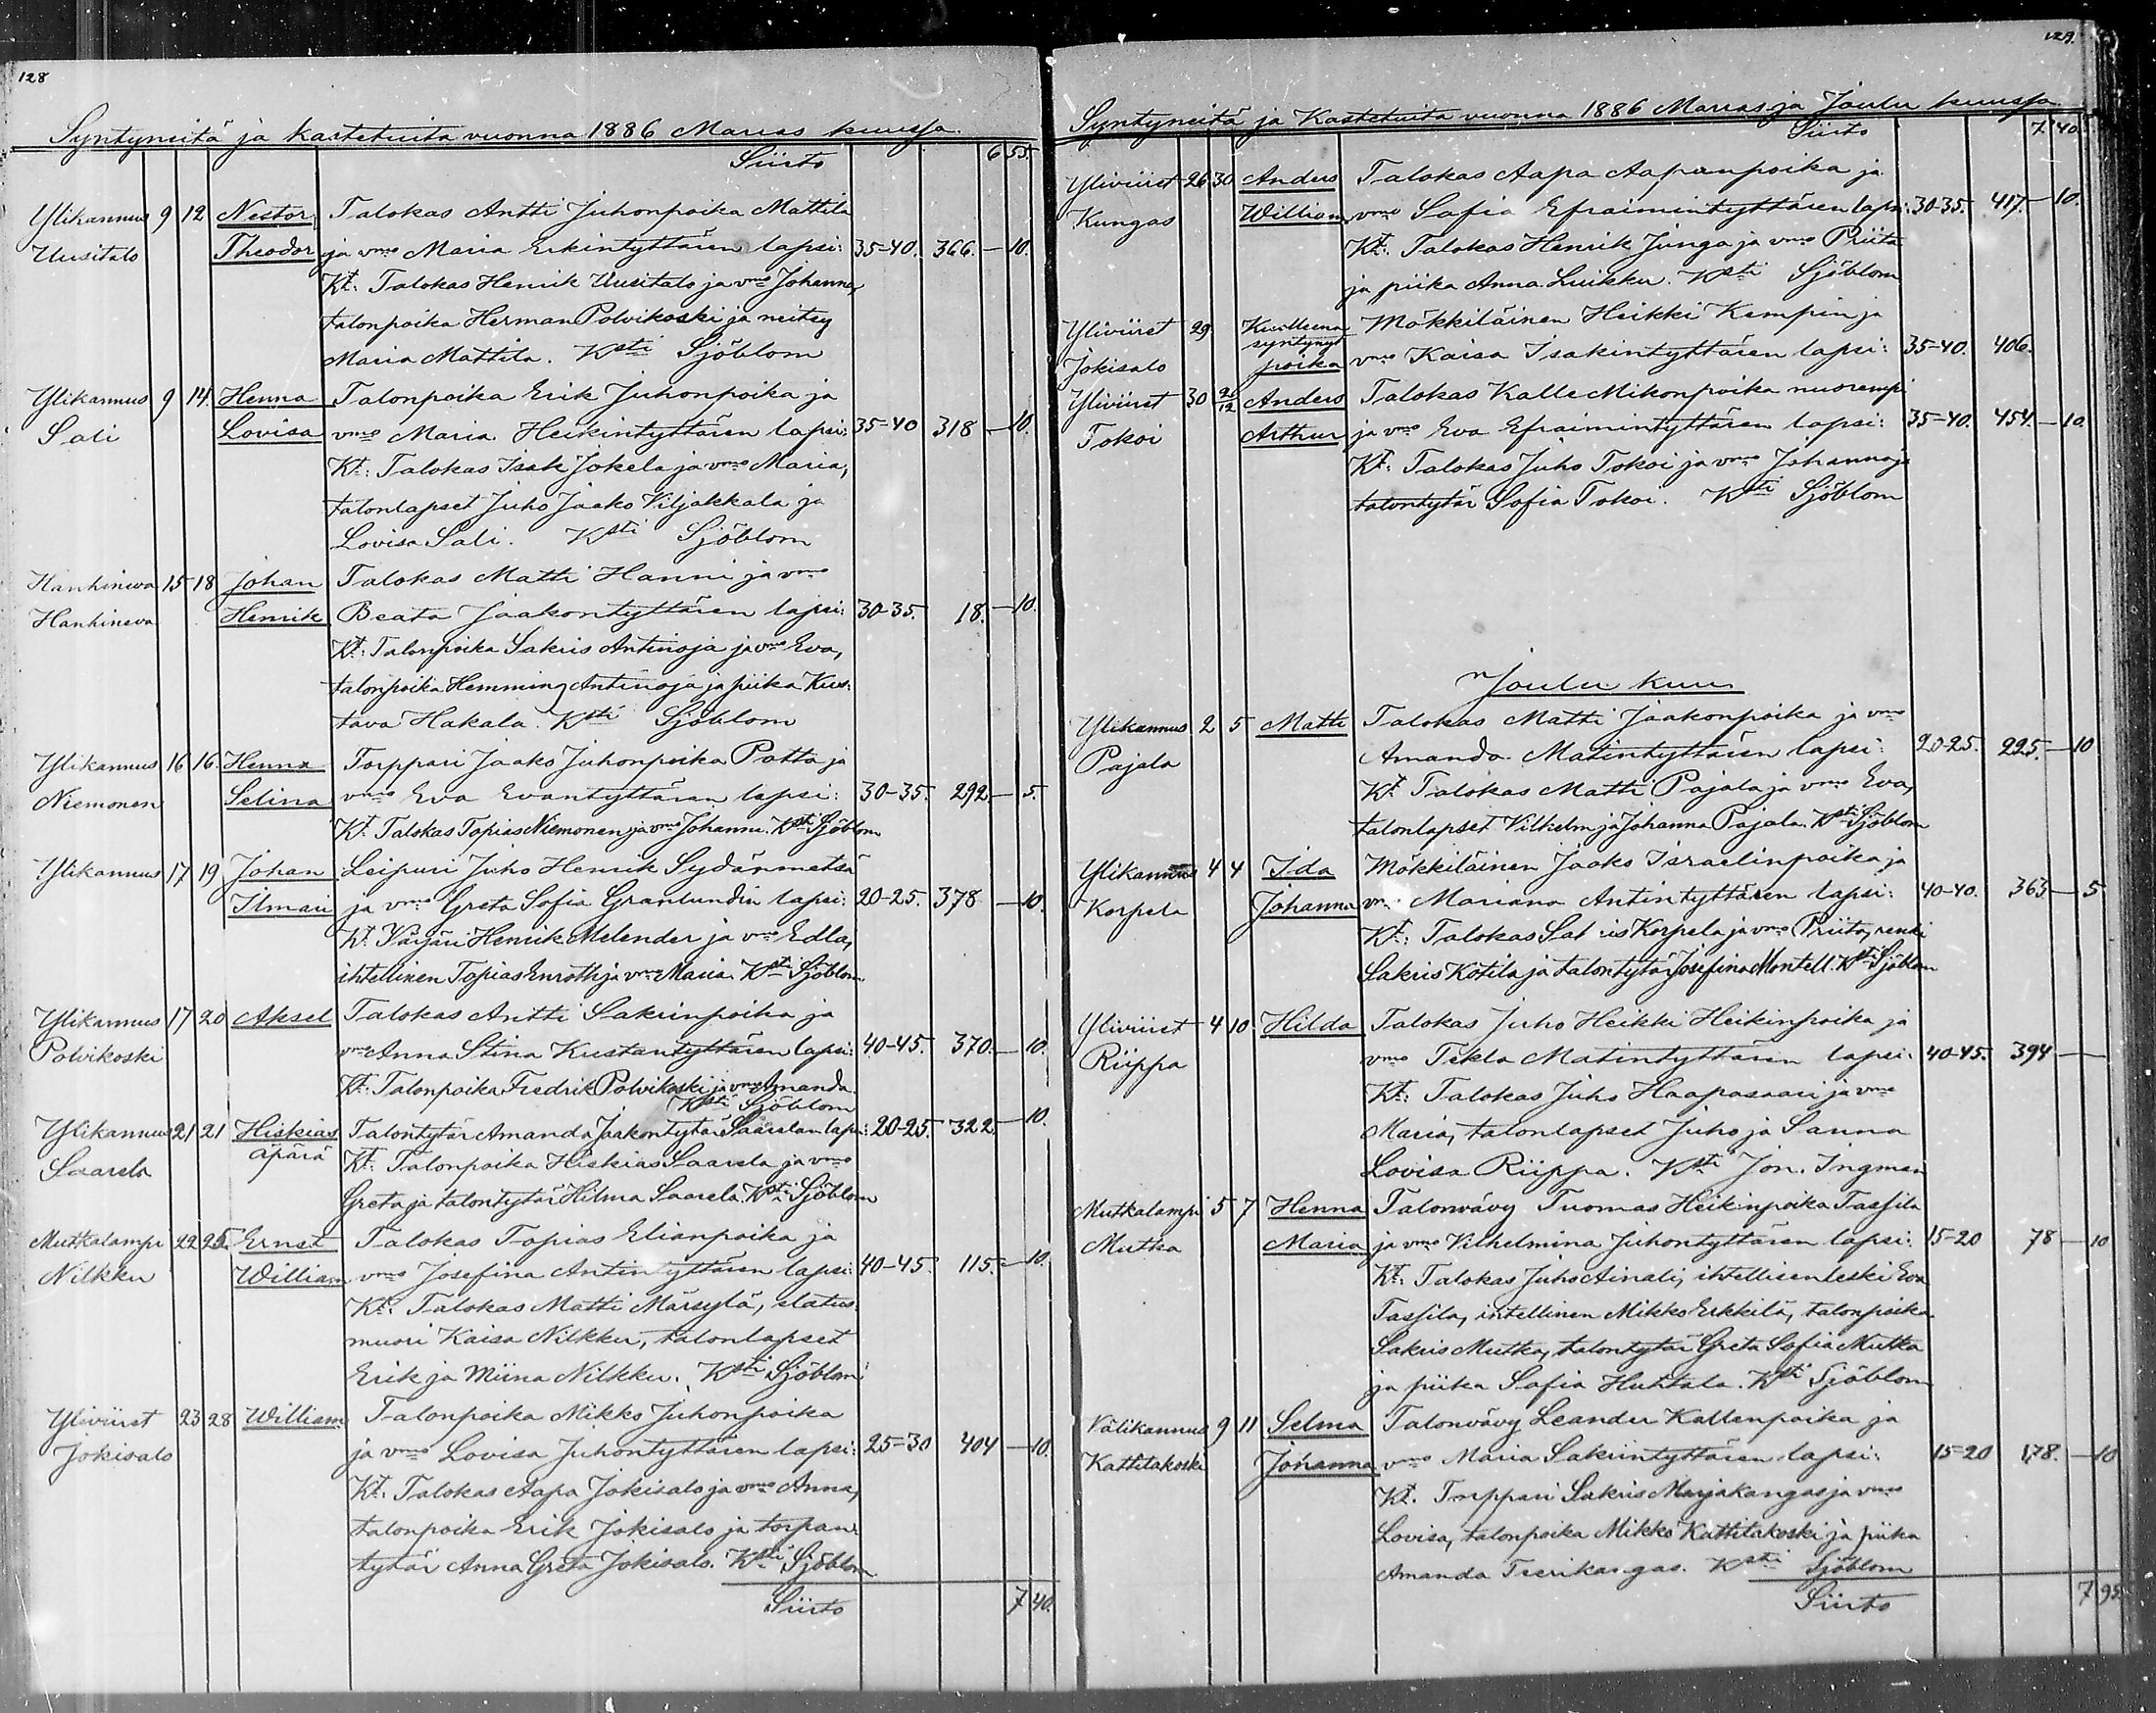 128
Syntyneitä ja kastetuita vuonna 1886 Marras kuussa.
Siirto 6 55.
Ylikannus 9 12 Nestor Talokas Antti Juhonpoika Mattila
Uusitalo Theodor ja vmo Maria Erkintyttären lapsi: 35-40. 366. — 10.
Kt: Talokas Henrik Uusitalo ja vmo Johanna,
talonpoika Herman Polvikoski ja neitsy
Maria Mattila. Ksti Sjöblom
Ylikannus 9 14. Henna Talonpoika Erik Juhonpoika ja
Sali Lovisa vmo Maria Heikintyttären lapsi: 35-40 318 — 10.
Kt: Talokas Isak Jokela ja vmo Maria,
talonlapset Juho Jaako Viljakkala ja
Lovisa Sali. Ksti Sjöblom
Hanhineva 15 18 Johan Talokas Matti Hanni ja vmo
Hanhineva Henrik Beata Jaakontyttären lapsi: 30-35. 18. — 10.
Kt: Talonpoika Sakris Antinoja ja vmo Eva,
talonpoika Hemming Antinoja ja piika Kus-
tava Hakala. Ksti Sjöblom
Ylikannus 16 16. Henna Torppari Jaako Juhonpoika Potta ja
Niemonen Selina vmo Eva Evantyttären lapsi: 30-35. 292 — 5.
Kt. Talokas Topias Niemonen ja vmo Johanna. Ksti Sjöblom
Ylikannus 17 19 Johan Leipuri Juho Henrik Sydänmetsä
Ilmari ja vmo Greta Sofia Granlundin lapsi: 20-25. 378 — 10.
Kt. Värjäri Henrik Melender ja vmo Edla,
ihtellinen Topias Enroth ja vmo Maria. Ksti Sjöblom.
Ylikannus 17 20 Aksel Talokas Antti Sakrinpoika ja
Polvikoski vmo Anna Stina Kustantyttären lapsi: 40-45. 370. — 10.
Kt: Talonpoika Fredrik Polvikoski ja vmo Amanda.
Ksti Sjöblom
Ylikannus 21 21 Hiskias Talontytär Amanda Jaakontytär Saarelan lapsi: 20-25. 322 — 10.
Saarela äpärä Kt: Talonpoika Hiskias Saarela ja vmo
Greta ja talontytär Hilma Saarela. Ksti Sjöblom
Mutkalampi 22 25. Ernst Talokas Topias Elianpoika ja
Nilkku William vmo Josefina Antintyttären lapsi: 40-45. 115. — 10.
Kt: Talokas Matti Märsylä, elatus-
muori Kaisa Nilkku, talonlapset
Erik ja Miina Nilkku. Ksti Sjöblom
Yliviiret 23 28 William Talonpoika Mikko Juhonpoika
Jokisalo ja vmo Lovisa Juhontyttären lapsi: 25-30 404 — 10.
Kt: Talokas Aapa Jokisalo ja vmo Anna,
talonpoika Erik Jokisalo ja torpan-
tytär Anna Greta Jokisalo. Ksti Sjöblom
Siirto 7 40.
129.
Syntyneitä ja Kastetuita vuonna 1886 Marras ja Joulu kuussa
Siirto 7. 40.
Yliviiret 26 30 Anders Talokas Aapa Aapanpoika ja
Kungas William vmo Sofia Efraimintyttären lapsi: 30-35. 417. — 10.
Kt: Talokas Henrik Junga ja vmo Priita
ja piika Anna Luikku. Ksti Sjöblom
Yliviiret 29 Kuolleena Mökkiläinen Heikki Kempin ja
Jokisalo syntynyt poika vmo Kaisa Isakintyttären lapsi: 35-40. 406.
Yliviiret 30 26/12 Anders Talokas Kalle Mikonpoika nuorempi
Tokoi Arthur ja vmo Eva Efraimintyttären lapsi: 35-40. 454. — 10.
Kt: Talokas Juho Tokoi ja vmo Johanna ja
talontytär Sofia Tokoi. Ksti Sjöblom
Joulu kuu
Ylikannus 2 5 Matti Talokas Matti Jaakonpoika ja vmo
Pajala Amanda Matintyttären lapsi: 20-25. 225. — 10
Kt Talokas Matti Pajala ja vmo Eva,
talonlapset Vilhelm ja Johanna Pajala. Ksti Sjöblom
Ylikannus 4 4 Ida Mökkiläinen Jaako Israelinpoika ja
Korpela Johanna vmo Mariana Antintyttären lapsi: 40-40. 363 — 5
Kt: Talokas Sakris Korpela ja vmo Priita, renki
Sakris Kotila ja talontytär Josefina Montell. Ksti Sjöblom
Yliviiret 4 10. Hilda Talokas Juho Heikki Heikinpoika ja
Riippa vmo Tekla Matintyttären lapsi: 40-45. 394 —
Kt: Talokas Juho Haapasaari ja vmo
Maria, talonlapset Juho ja Sanna
Lovisa Riippa. Ksti Jon. Ingman
Mutkalampi 5 7 Henna Talonvävy Tuomas Heikinpoika Tassila
Mutka Maria ja vmo Vilhelmina Juhontyttären lapsi: 15-20 78 — 10
Kt: Talokas Juho Ainali, ihtellisen leski Eva
Tassila, ihtellinen Mikko Erkkilä, talonpoika
Sakris Mutka, talontytär Greta Sofia Mutka
ja piika Sofia Huhtala. Ksti Sjöblom
Välikannus 9 11 Selma Talonvävy Leander Kallenpoika ja
Kattilakoski Johanna vmo Maria Sakrintyttären lapsi: 15-20 178. — 10
Kt. Torppari Sakris Marjakangas ja vmo
Lovisa, talonpoika Mikko Kattilakoski ja piika
Amanda Teerikangas. Ksti Sjöblom
Siirto 7 95.